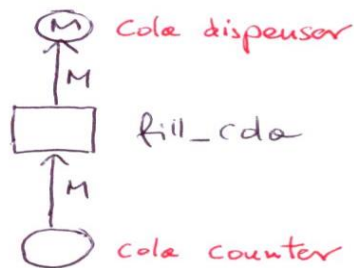 M cola dispenser
M
fill_cola
M
cola counter